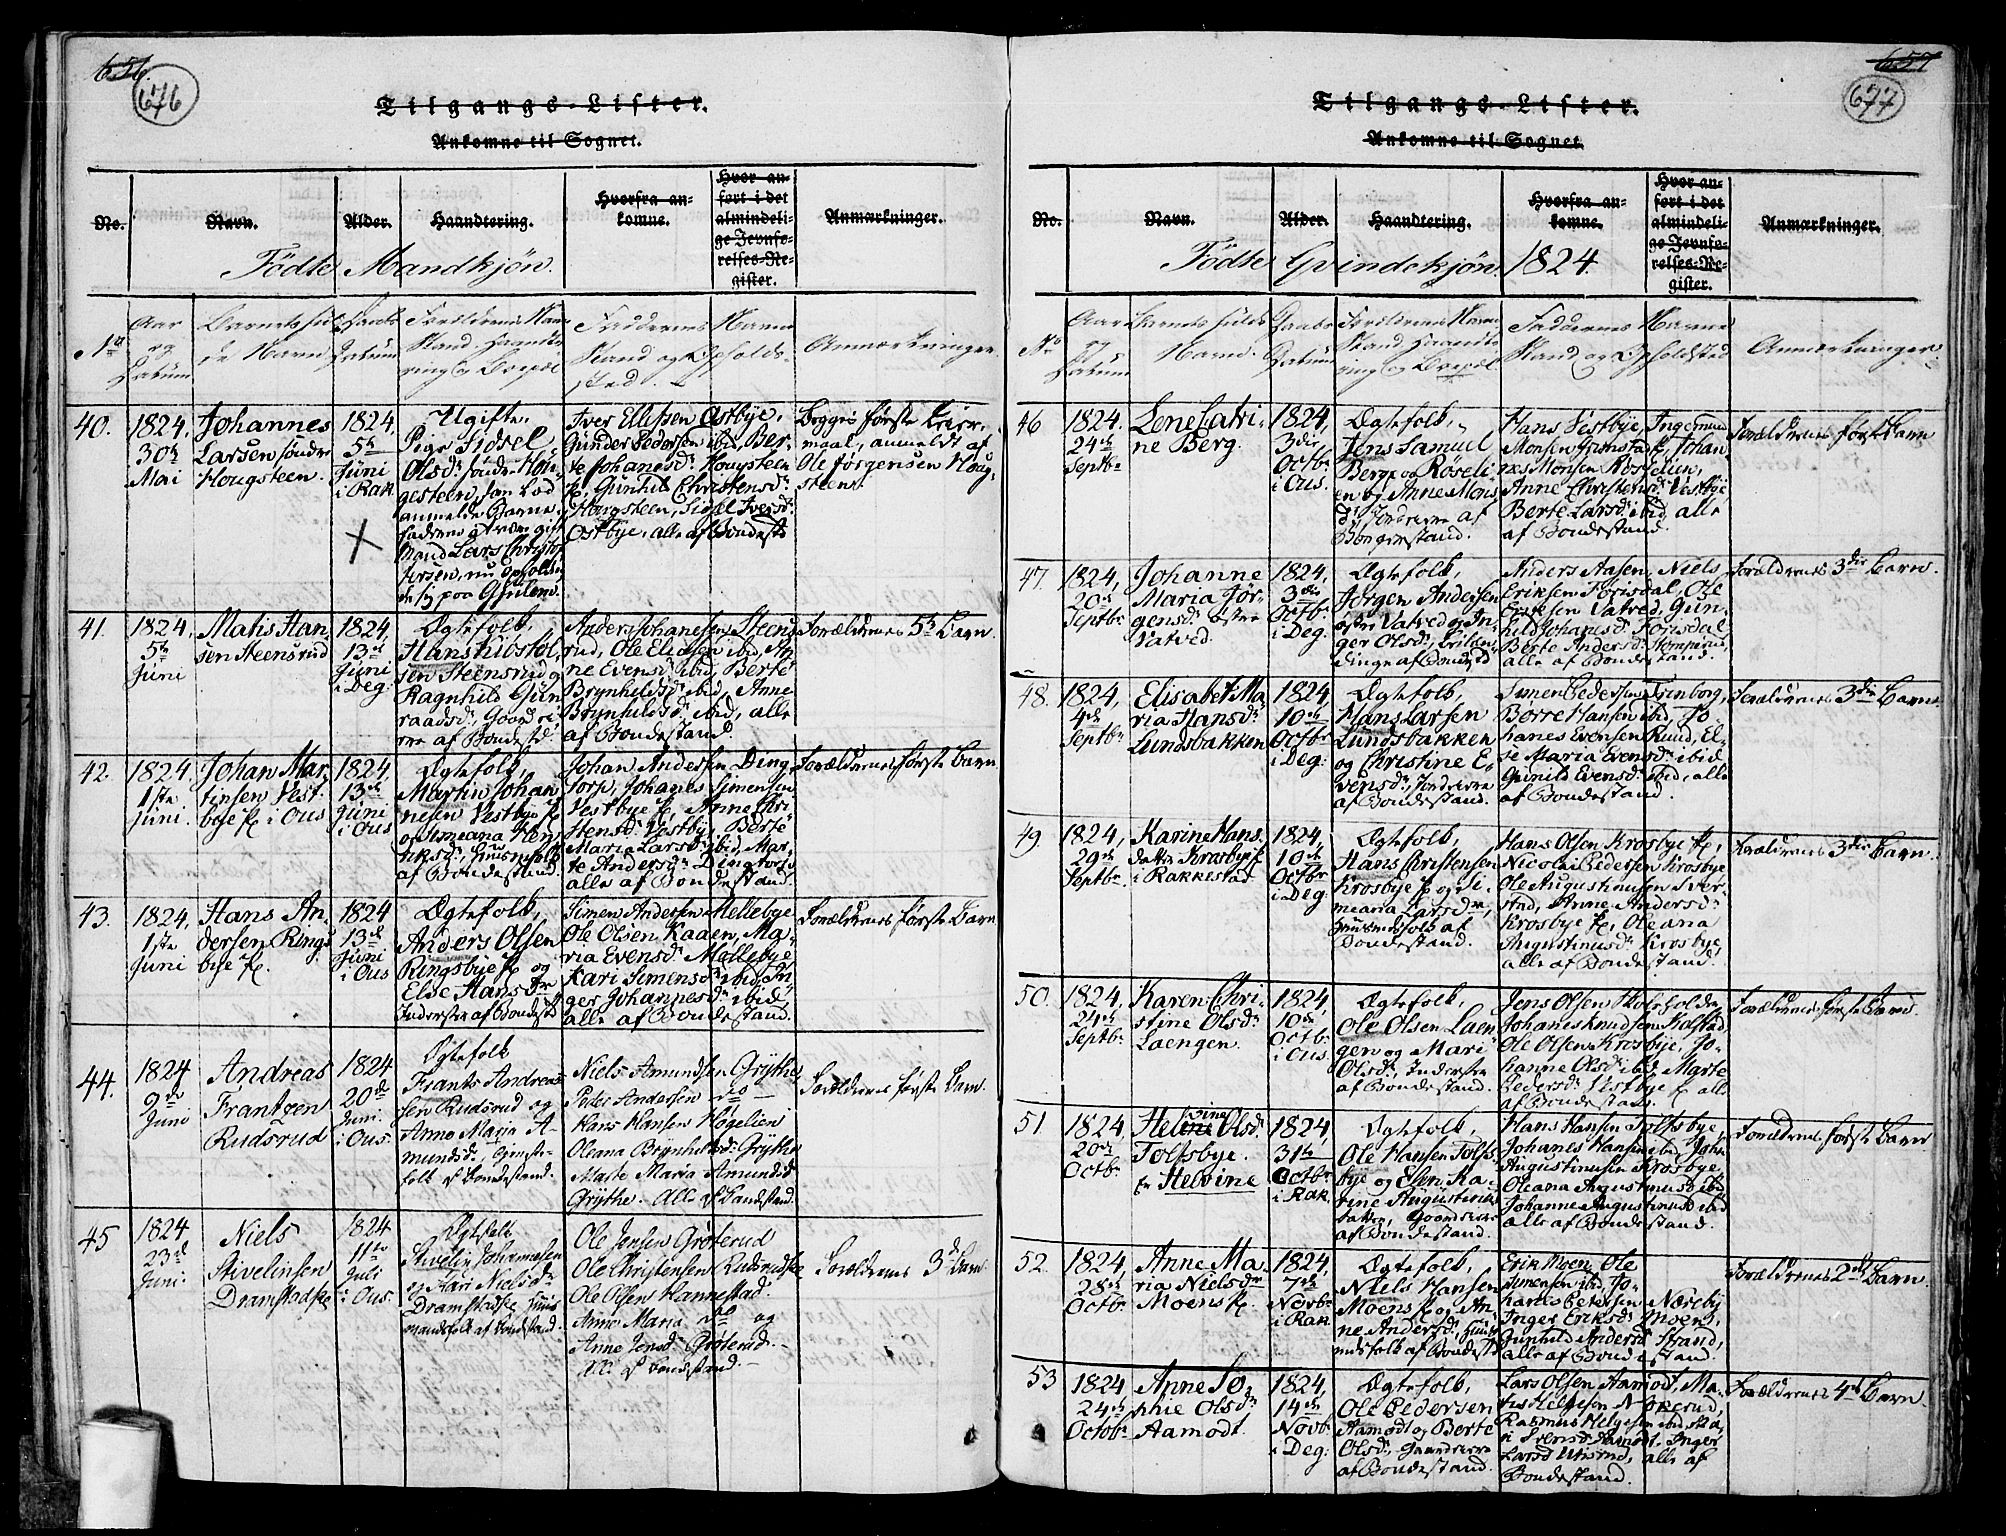 656.
676
Tilgangs-Lister.
Ankomne til Sognet.
No.
Navn.
Alder.
Haandtering.
Hvorfra an-
komne.
Hvor an-
ført i det
almindeli-
ge Jevnfø-
relses-Re-
gister.
Anmærkninger.
Födte Mandkjön.
No
Aar
og
Datum
Barnets ful
de Navn
Daabs
Datum
Forældrenes Navn
Stand, Haandte
ring og Bopæl
Faddernes Navne
Stand og Opholds-
sted.
Anmærkninger.
40.
1824,
30te
Mai
Johannes
Larsen söndre
Hougsteen.
1824,
5te
Juni
i Rak.
Ugifte,
Pige Sidsel
Olsd: söndre Hou-
gesteen, som lod
anmelde Barne-
faderen at være gift
Mand Lars Christof
fersen, nu opholden
de sig paa
Iver Ellefsen Østbye,
Gunder Pedersen ibid, Ber-
te Johanesd: Hougsteen
Gunhil Christensd:
Hougsteen, Sidsel Iversd:
Østbye, alle af Bondestd
Begges første Leier-
maal, anmeldt af
Ole Jørgensen Houg-
steen.
41.
1824,
5te
Juni
Matis Han-
sen Steensrud
1824,
13de
Juni
i Deg:
Ægtefolk,
Hans
sen Steensrud og
Ragnhild Gun-
raadsd:, Gaard ei-
ere af Bondestd:
Anders Johanesen Steens
rud, Ole Eliasen ibid, An-
ne Evensd: ibid, Berte
Brynhildsd: ibid, Anne
Brynhildsd: ibid, alle
af Bondestand.
Forældrenes 5te Barn.
42.
1824.
1ste
Juni.
Johan Mar-
tinsen Vest
bye i Ous
1824,
13de
Juni
i Ous
Ægtefolk,
Martin Johan
nesen Vestbye
og Simeana Hen
riksd:, Huusmfolk
af Bondestand.
Johan Andersen Ding
torp, Johanes Simensen
Vestbye, Anne Chri
stensd: Vestbye, Berte
Maria Larsd: ibid, Mar-
te Andersd: Dingtorp
alle af Bondestand.
Forældrenes første Barn
43.
1824,
1ste
Juni
Hans An-
dersen Rings
bye
1824
13de
Juni
i Ous
Ægtefolk,
Anders Olsen
Ringsbye og
Else Hansdr
Inderster af Bondestd
Simen Andersen Mellebye
Ole Olsen Kaaen, Ma-
ria Evensd: Mellebye
Kari Simensd: ibid, In-
ger Johannesd: ibid,
alle af Bondestand.
Forældrenes første Barn
44.
1824
9de
Juni
Andreas
Frantzen
Rudsrud
1824
20de
Juni
i Ous.
Ægtefolk
Frants Andrea-
sen Rudsrud og
Anne Maria A-
mundsd:,
folk af Bondestand.
Niels Amundsen Grÿthe
Peder Andersen do
Hans Hansen Høgelien
Oleana Brynhildsd: Grÿthe
Marte Maria Amundsd
Grÿthe. Alle af Bondestand.
Forældrenes første Barn.
45
1824
23de
Juni.
Niels
Stivelinsen
Dramstad
1824
11te
Juli
i Ous.
Ægtefolk
Stivelin Johannesen
og Kari Nielsd:
Dramstad Huus
mandsfolk af Bondestand.
Ole Jensen Grøterud
Ole Christensen Rudsrud
Ole Olsen Hannestad.
Anne Maria do og
Anne Jensd: Grøterud.
Alle af Bondestand.
Forældrenes 3de Barn.
657
677
Tilgangs-Lister.
Ankomne til Sognet.
No.
Navn.
Alder.
Haandtering.
Hvorfra an-
komne.
Hvor an-
ført i det
almindeli-
ge Jevnfø-
relses-Re-
gister.
Anmærkninger.
Födte Qvindekjön. 1824.
No
Aar
og
Datum
Barnets fulde
Navn.
Daabs
Datum
Forældrenes Navn
Stand Haandte
ring og Bopæl
Faddernes Navne
Stand og Opholdsted
Anmærkninger.
46
1824.
24de
Septbr
Lene Catri-
ne Berg.
1824,
3die
Octbr
i Ous.
Ægtefolk,
Jens Samuel
Berg og Röseli-
en og Anne Mons
d:, Inderne af
Borgerstand.
Hans Vestbye, Ingemund
Monsen Johan-
nes Monsen Röselien,
Anne Christensd: Vestbye
Berte Larsd: ibid, alle
af Bondestand.
Forældrenes første Barn
47.
1824,
20de
Septbr
Johanne
Maria Jør-
gensd: østre
Vatved.
1824,
3die
Octbr
i Deg.
Ægtefolk,
Jørgen Andersen
østre Vatved og In-
ger Olsd:,
af Bondestd
Anders Aasen, Niels
Eriksen Forisdal, Ole
Eriksen Vatved, Gun-
hild Johansd: Forisdal
Berte Andersd: Stomperud,
alle af Bondestand.
Forældrenes 3die Barn.
48.
1824,
4de
Septbr
Elisabet Ma-
ria Hansd:
Lundsbakken
1824,
10de
Octbr
i Deg:
Ægtefolk,
Hans Larsen
Lundsbakken
og Christine E-
vensd:, Inderne
af Bondestand.
Simen Pedersen
Børre Hansen ibid, Jo-
hanes Evensen Ruud, El-
se Maria Evensd: ibid
Gunild Evensd: ibid, alle
af Bondestand.
Forældrenes 3die Barn
49
1824,
29de
Septbr.
Karine Hans-
datter Krosbye
i Rakkestad
1824,
10de
Octbr
i Deg:
Ægtefolk,
Hans Christensen
Krosbye og Si-
meana Larsdr,
Huusmdsfolk af
Bondestand.
Hans Olsen Krosbye,
Nicolai Pedersen Krosbye
Ole Augustinusen Sver-
stad, Anne Andersd:
Krosbye, Oleana
Augustinusd: Krosbye,
alle af Bondestand.
Forældrenes 3die Barn.
50.
1824,
24de
Septbr
Karen Chri-
stine Olsd:
Laengen.
1824
10de
Octbr
i Ous
Ægtefolk,
Ole Olsen Laen
gen og Mari
Olsd:, Inderster
af Bondestand.
Jens Olsen Skoleholder
Johanes Knudsen Kolstad,
Ole Olsen Krosbye, Jo-
hanne Olsd: ibid, Marte
Pedersd: Vestbye alle
af Bondestand.
Forældrenes første Barn.
51
1824
20de
Octbr
Helvine Olsd:
Tolfsbye.
Helvine
1824,
31te
Octbr
i Rak.
Ægtefolk,
Ole Hansen Tolfs
bye og Elen Ka-
tine Augustinus
datter, Gaardeiere
af Bondestand.
Hans Hansen Tolfsbye,
Johanes Hansen ibid, John
Augustinusen Krosbye,
Oleana Augustinusd ibid
Johanne Augustinusd ibid
alle af Bondestand.
Forældrenes første Barn
52.
1824,
28de
Octbr
Anne Ma-
ria Nielsdr
Moens
1824,
7de
Novbr
i Rak
Ægtefolk,
Niels Hansen
Moens og An-
ne Andersd:, Huus
mdsfolk af Bondestd
Erik Moen, Ole
Simensen ibid, Jo-
hanes Petersen Næreby
Inger Eriksd: Moens,
Gunhild Andersd: Strand,
alle af Bondestand.
Forældrenes 2det Barn
53
1824
24de
Octobr
Anne So-
phie Olsd:
Aamodt.
1824,
14de
Novbr
i Deg:
Ægtefolk,
Ole Pedersen
Aamodt og Berte
Olsd:, Gaardeiere
af Bondestand.
Lars Olsen Aamodt, Ma-
tis Helgesen Nökerud,
Rasmus Helgesen ibid,
Iversd: Aamodt, Inger
Larsd alle af
Bondestand.
Forældrenes 4de Barn.